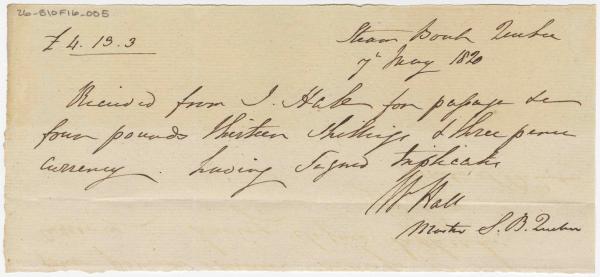 26-B10F16-005
£ 4. 13. 3
Steam Boat Quebec
7th May 1820
Received from J. Hale for passage &c
four pounds thirteen Shillings & three pence
Currency. having Signed triplicate
Wm Hall
Master S. B. Quebec